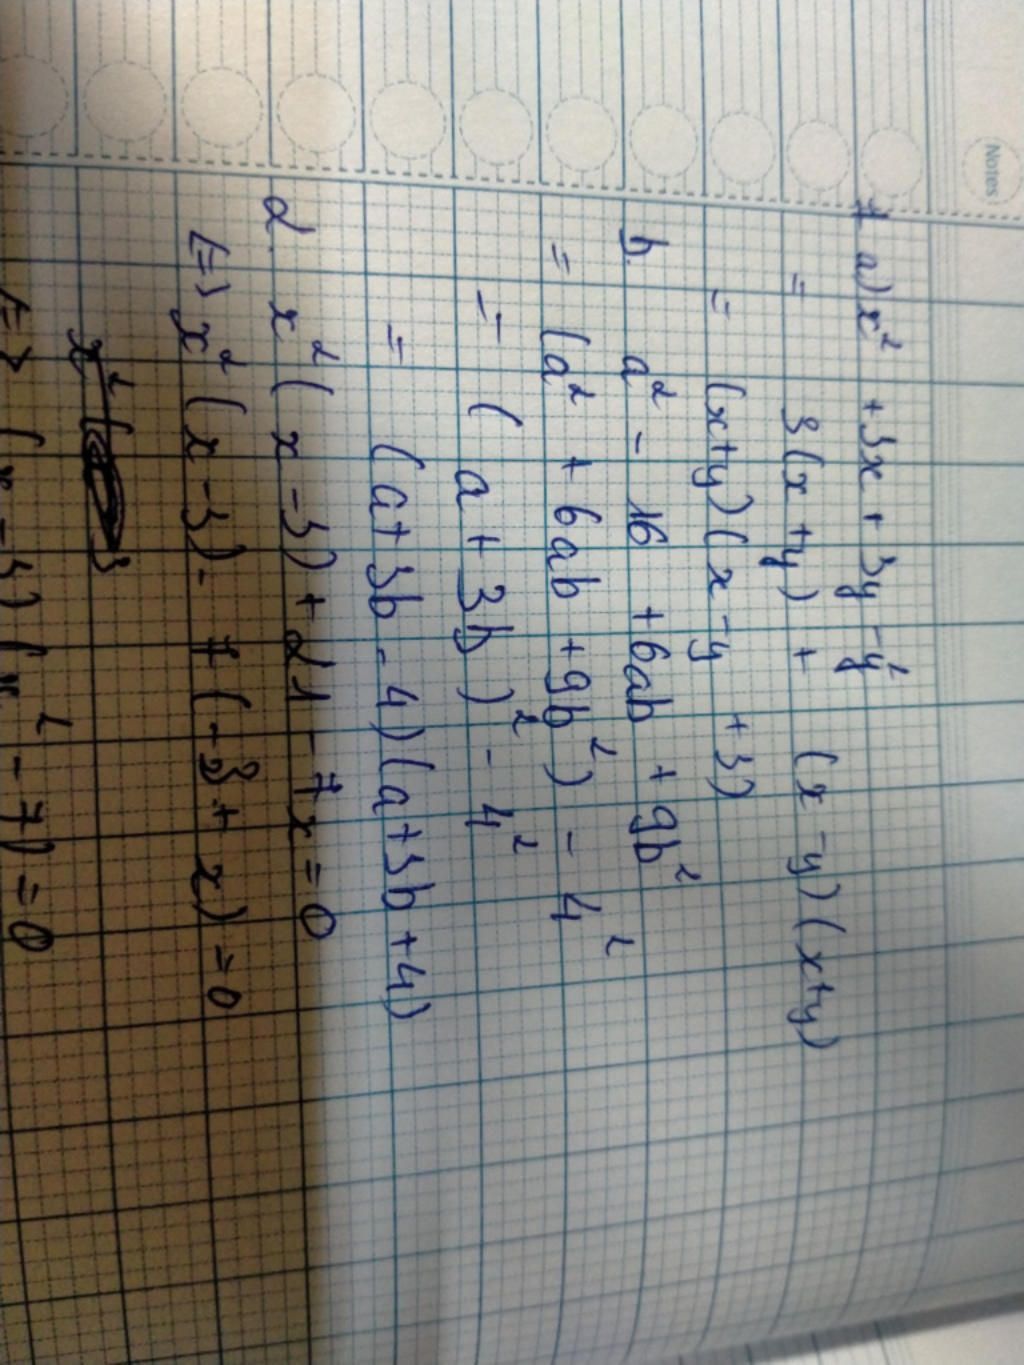 Notes
1 a) x² + 3x + 3y - y²
= 3(x + y) + (x - y)(x + y)
= (x+y)(x - y + 3)
b. a² - 16 + 6ab + 9b²
= (a² + 6ab + 9b²) - 4²
= (a + 3b)² - 4²
= (a + 3b - 4)(a + 3b + 4)
2. x²(x - 3) + 21 - 7x = 0
<=> x²(x - 3) - 7(-3 + x) = 0
<=> (x - 3)(x² - 7) = 0